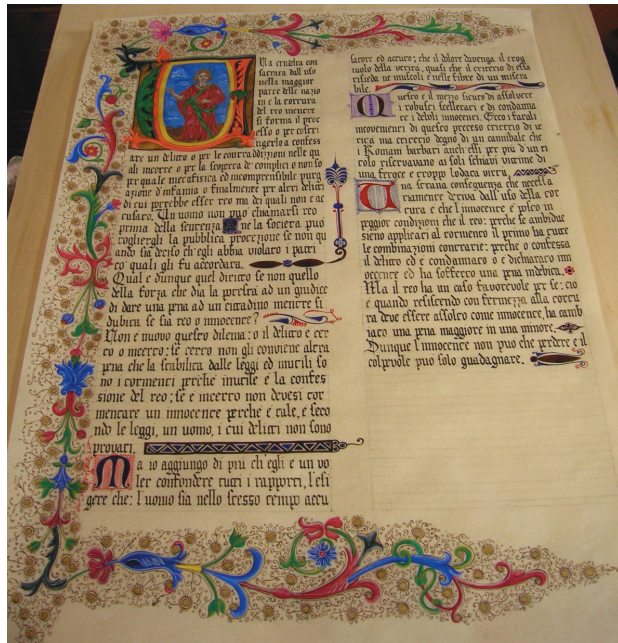 Una crudeltà con
sacrata dall uso
nella maggior
parte delle nazio
ni è la tortura
del reo mentre
si forma il proc
esso o per costri
ngerlo a confess
are un delitto o per le contradizioni nelle qu
ali incorre o per la scoperta de complici o non so
per quale metafisica ed incomprensibile purg
azione d'infamia o finalmente per altri delitti
di cui potrebbe esser reo ma dei quali non è ac
cusato. Un uomo non può chiamarsi reo
prima della sentenza ne la società può
togliergli la pubblica protezione se non qu
ando sia deciso ch'egli abbia violato i patti
co' quali gli fu accordata.
Qual è dunque quel diritto se non quello
della forza che dia la potestà ad un giudice
di dare una pena ad un cittadino mentre si
dubita se sia reo o innocente?
Non è nuovo questo dilema: o il delitto è cer
to o incerto; se certo non gli conviene altra
pena che la stabilita dalle leggi ed inutili so
no i tormenti perchè inutile è la confes
sione del reo; se è incerto non devesi tor
mentare un innocente perche è tale, e seco
ndo le leggi, un uomo, i cui delitti non sono
provati.
Ma io aggiungo di più ch'egli è un vo
ler confondere tutti i rapporti, l'esi
gere che: l'uomo sia nello stesso tempo accu
satore ed accuto; che il dolore divenga il crog
iuolo della verità, quasi che il criterio di essa
risieda ne muscoli e nelle fibre di un misera
bile.
Questo è il mezzo sicuro di assolvere
i robusti scellerati e di condanna
re i deboli innocenti. Ecco i fatali
inconvenienti di questo preteso criterio di ve
rità ma criterio degno di un cannibale che
i Romani barbari anch essi per più d'un ti
tolo riserbavano ai soli schiavi vittime di
una feroce e troppo lodata virtù.
Una strana conseguenza che necessa
riamente deriva dall uso della tor
tura è che l innocente è posto in
peggior condizioni che il reo: perchè se ambidue
sieno applicati al tormento il primo ha tutte
le combinazioni contrarie: perchè o confessa
il delitto ed è condannato o è dichiarato inn
ocente ed ha sofferto una pena indebita.
Ma il reo ha un caso favorevole per se: cio
è quando resistendo con fermezza alla tortu
ra deve essere assolto come innocente, ha camb
iato una pena maggiore in una minore.
Dunque l innocente non può che perdere e il
colpevole può solo guadagnare.